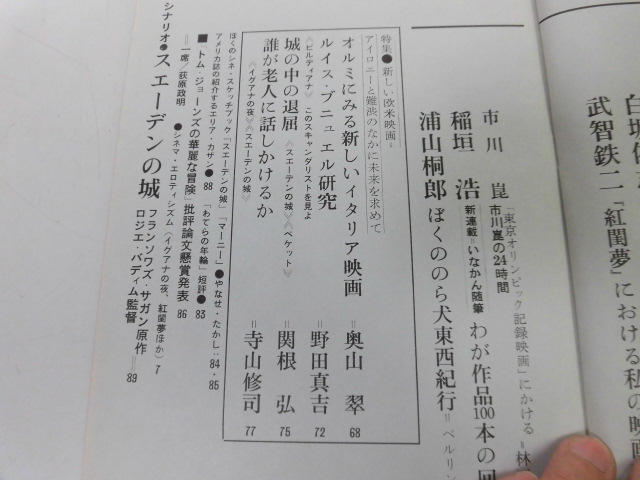 白坂依
武智鉄二『紅閨夢』における私の映画
市川 崑 「東京オリンピック記録映画」にかける =林
市川崑の24時間
稲垣 浩 新連載=いなかん随筆 わが作品100本の回
浦山桐郎 ぼくののら犬東西紀行=ベルリン
特集●新しい欧米映画=
アイロニーと難渋のなかに未来を求めて
オルミにみる新しいイタリア映画 =奥山 翠 68
ルイス・ブニュエル研究 =野田真吉 72
《ビルディアナ》 このスキャンダリストを見よ
城の中の退屈 《スエーデンの城》《ベケット》 =関根 弘 75
誰が老人に話しかけるか =寺山修司 77
《イグアナの夜》《スエーデンの城》
ぼくのシネ・スケッチブック「スエーデンの城」「マーニー」●やなせ・たかし‥84・85
アメリカ誌の紹介するエリア・カザン●88 「おてらの年輪」短評●83
■トム・ジョーンズの華麗な冒険 批評論文懸賞発表 86
=一席/荻原政明 ●シネマ・エロティシズム(イグアナの夜、紅閨夢ほか)7
シナリオ●スエーデンの城 フランソワズ・サガン原作
ロジエ・バディム監督 =89